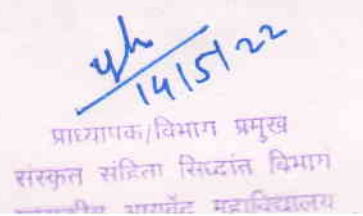 14/5/22
प्राध्यापक/विभाग प्रमुख
संस्कृत संहिता सिध्दांत विभाग
आयुर्वेद महाविद्यालय